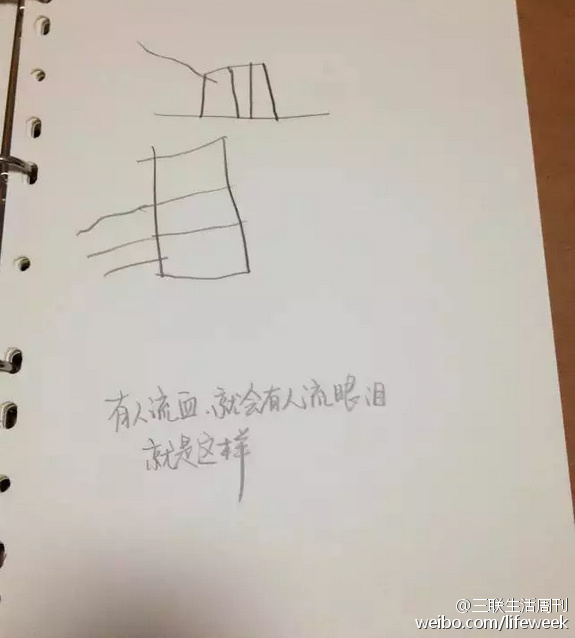 有人流血、就会有人流眼泪
就是这样
@三联生活周刊
weibo.com/lifeweek